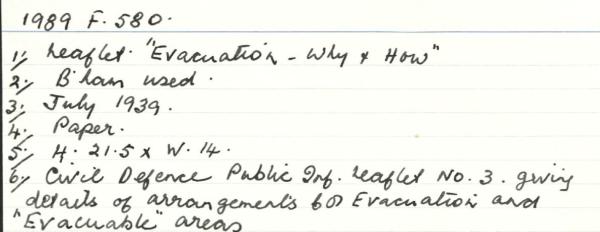 1989 F. 580.
1/ Leaflet. "Evacuation - Why & How"
2/ B'ham used.
3/ July 1939.
4/ Paper.
5/ H. 21.5 x W. 14.
6/ Civil Defence Public Inf. Leaflet No. 3. giving
details of arrangements for Evacuation and
"Evacuable" areas